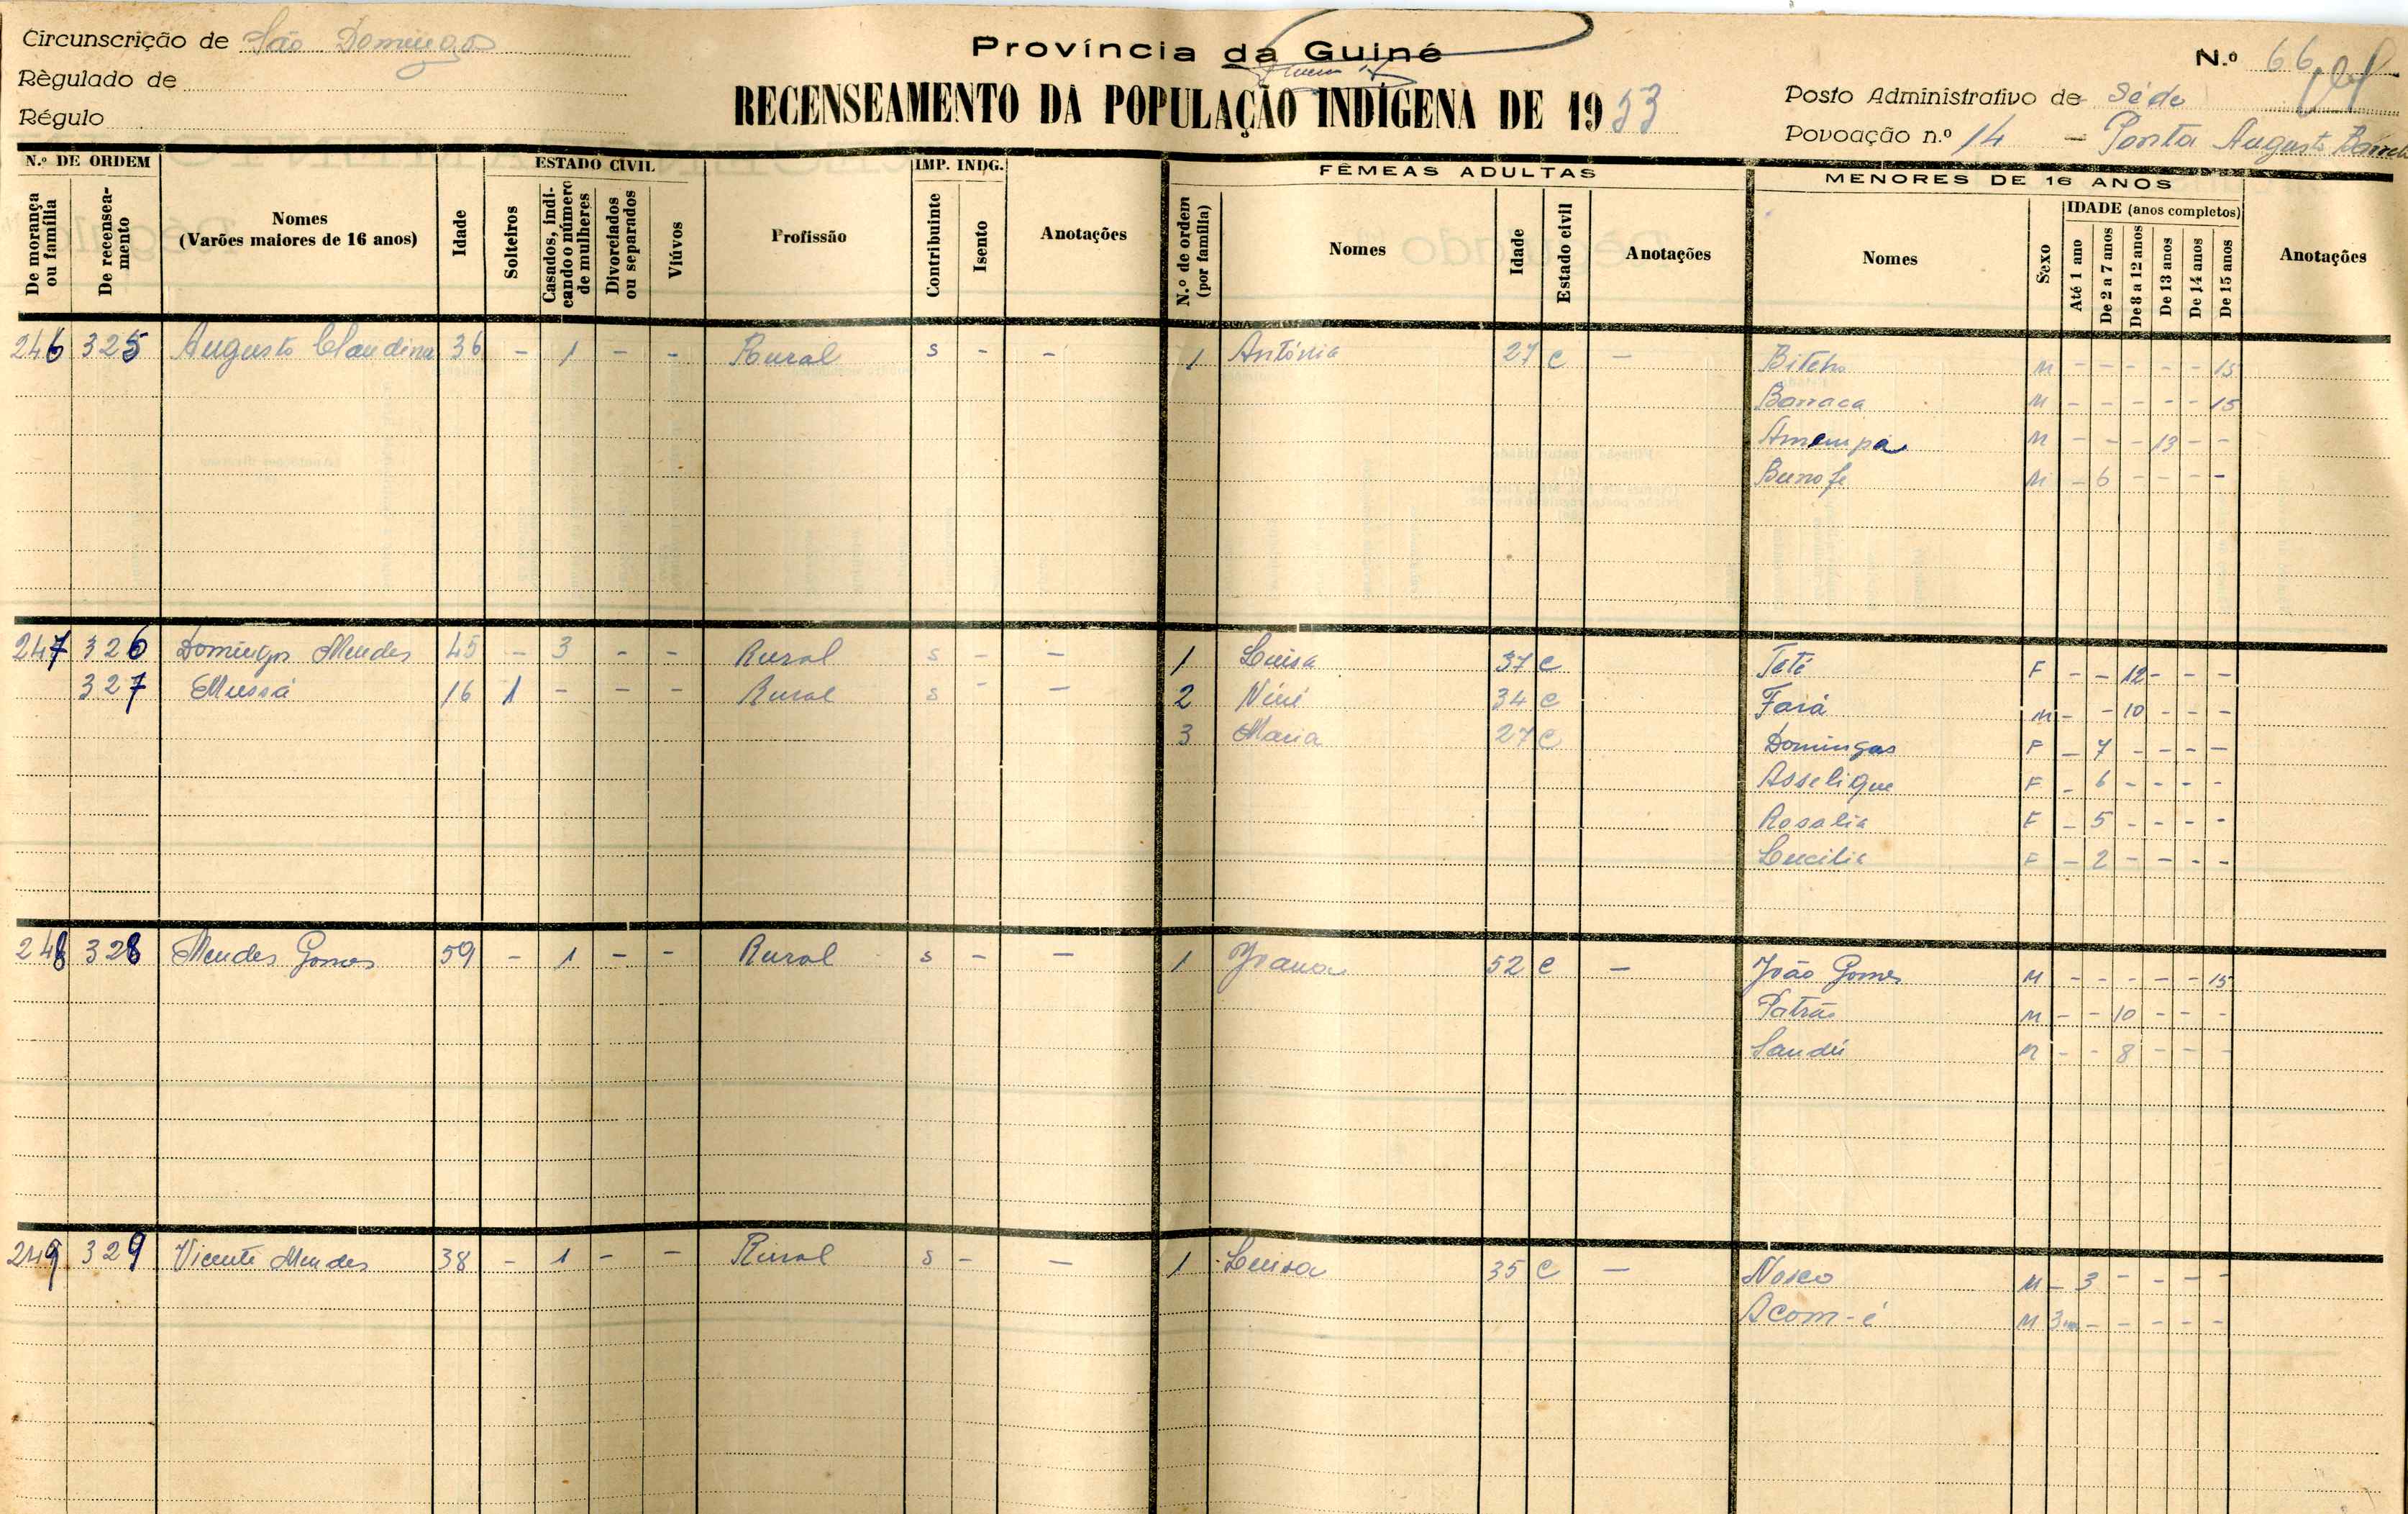 Circunscrição de São Domingos
Règulado de
Régulo
Província da Guiné
RECENSEAMENTO DA POPULAÇÃO INDÍGENA DE 1953
N.º 66
Posto Administrativo de Séde
Povoação n.º 14 - Ponta Augusto
N.º DE ORDEM
De morança ou família
De recenseamento
Nomes
(Varões maiores de 16 anos)
Idade
ESTADO CIVIL
Solteiros
Casados, indicando o número de mulheres
Divorciados ou separados
Viúvos
Profissão
IMP. INDG.
Contribuinte
Isento
Anotações
FÊMEAS ADULTAS
N.º de ordem (por família)
Nomes
Idade
Estado civil
Anotações
MENORES DE 16 ANOS
Nomes
Sexo
IDADE (anos completos)
Até 1 ano
De 2 a 7 anos
De 8 a 12 anos
De 13 anos
De 14 anos
De 15 anos
Anotações
246 325 Augusto Claudino 36 - 1 - - Rural s - - 1 Antónia 27 C - Biteho M - - - - - 15
Barraca M - - - - - 15
Amempa M - - - 13 - -
Bunofe M - 6 - - - -
247 326 Domingos Mendes 45 - 3 - - Rural s - - 1 Luisa 37 C Teté F - - 12 - - -
327 Mussá 16 1 - - - Rural s - - 2 Nini 34 C Fará M - - 10 - - -
3 Maria 27 C Domingas F - 7 - - - -
Asselique F - 6 - - - -
Rosalia F - 5 - - - -
Lucilia F - 2 - - - -
248 328 Mendes Gomes 59 - 1 - - Rural s - - 1 Joana 52 C - João Gomes M - - - - - 15
Patrás M - - 10 - - -
Sandú M - - 8 - - -
249 329 Vicente Mendes 38 - 1 - - Rural s - - 1 Luisa 35 C - Nosco M - 3 - - - -
Acom-é M 3m - - - - -